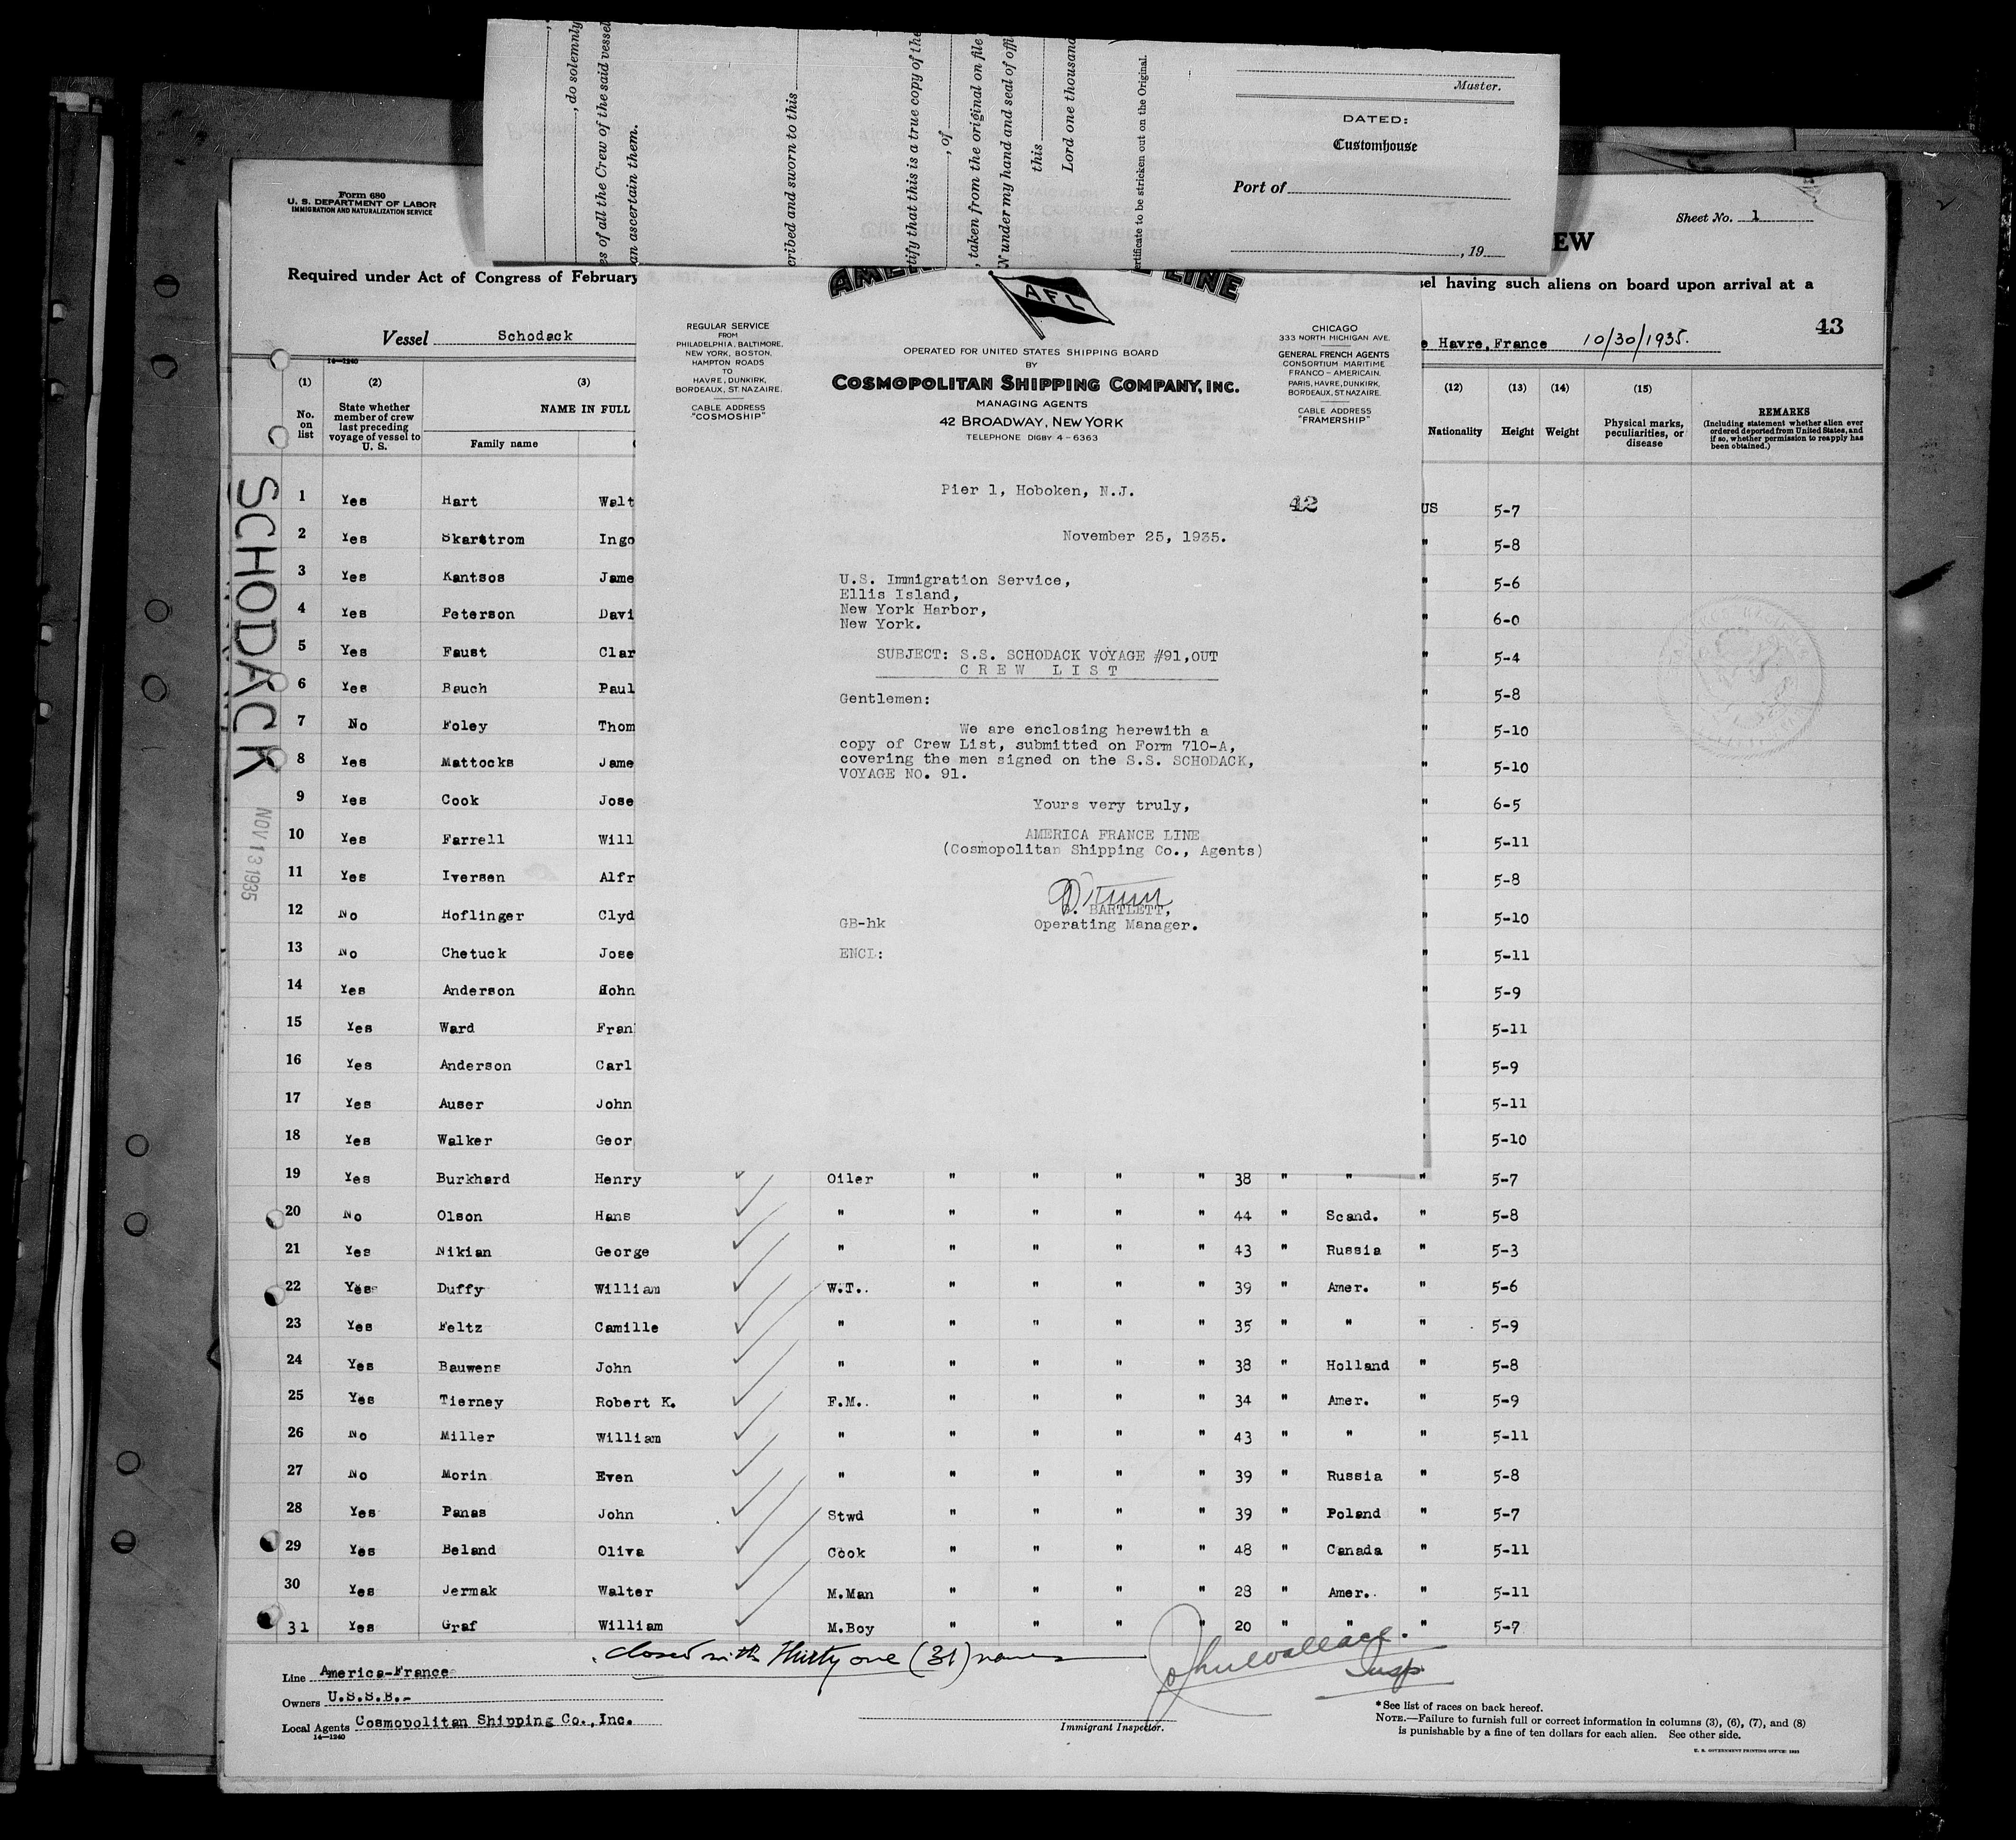 , do solemnly
es of all the Crew of the said vessel
an ascertain them.
cribed and sworn to this
tify that this is a true copy of the
, of
, taken from the original on file
N under my hand and seal of offi
this
Lord one thousand
ertificate to be stricken out on the Original.
Master.
DATED:
Customhouse
Port of
, 19
Form 680
U. S. DEPARTMENT OF LABOR
IMMIGRATION AND NATURALIZATION SERVICE
Sheet No. 1
EW
Required under Act of Congress of February
sel having such aliens on board upon arrival at a
43
Vessel Schodack
e Havre, France 10/30/1935.
14-1240
(1) (2) (3) (12) (13) (14) (15)
No. on list
State whether member of crew last preceding voyage of vessel to U. S.
NAME IN FULL
Family name
Nationality Height Weight
Physical marks, peculiarities, or disease
REMARKS
(Including statement whether alien ever ordered deported from United States, and if so, whether permission to reapply has been obtained.)
SCHODACK
NOV 13 1935
AFL
LINE
REGULAR SERVICE
FROM
PHILADELPHIA, BALTIMORE,
NEW YORK, BOSTON,
HAMPTON ROADS
TO
HAVRE, DUNKIRK,
BORDEAUX, ST. NAZAIRE.
CABLE ADDRESS
"COSMOSHIP"
OPERATED FOR UNITED STATES SHIPPING BOARD
BY
COSMOPOLITAN SHIPPING COMPANY, INC.
MANAGING AGENTS
42 BROADWAY, NEW YORK
TELEPHONE DIGBY 4-6363
CHICAGO
333 NORTH MICHIGAN AVE.
GENERAL FRENCH AGENTS
CONSORTIUM MARITIME
FRANCO-AMERICAIN.
PARIS, HAVRE, DUNKIRK,
BORDEAUX, ST. NAZAIRE.
CABLE ADDRESS
"FRAMERSHIP"
Pier 1, Hoboken, N.J.
42
November 25, 1935.
U.S. Immigration Service,
Ellis Island,
New York Harbor,
New York.
SUBJECT: S.S. SCHODACK VOYAGE #91,OUT
C R E W L I S T
Gentlemen:
We are enclosing herewith a
copy of Crew List, submitted on Form 710-A,
covering the men signed on the S.S. SCHODACK,
VOYAGE NO. 91.
Yours very truly,
AMERICA FRANCE LINE
(Cosmopolitan Shipping Co., Agents)
BARTLETT,
GB-hk Operating Manager.
ENCL:
1 Yes Hart Walt US 5-7
2 Yes Skarstrom Ingo " 5-8
3 Yes Kantsos Jame " 5-6
4 Yes Peterson Davi " 6-0
5 Yes Faust Clar " 5-4
6 Yes Bauch Paul " 5-8
7 No Foley Thom " 5-10
8 Yes Mattocks Jame " 5-10
9 Yes Cook Jose " 6-5
10 Yes Farrell Will " 5-11
11 Yes Iversen Alfr " 5-8
12 No Hoflinger Clyd " 5-10
13 No Chetuck Jose " 5-11
14 Yes Anderson John " 5-9
15 Yes Ward Fran " 5-11
16 Yes Anderson Carl " 5-9
17 Yes Auser John " 5-11
18 Yes Walker Geor " 5-10
19 Yes Burkhard Henry Oiler " " " " 38 " " " 5-7
20 No Olson Hans " " " " " 44 " Scand. " 5-8
21 Yes Nikian George " " " " " 43 " Russia " 5-3
22 Yes Duffy William W.T. " " " " 39 " Amer. " 5-6
23 Yes Feltz Camille " " " " " 35 " " " 5-9
24 Yes Bauwens John " " " " " 38 " Holland " 5-8
25 Yes Tierney Robert K. F.M. " " " " 34 " Amer. " 5-9
26 No Miller William " " " " " 43 " " " 5-11
27 No Morin Even " " " " " 39 " Russia " 5-8
28 Yes Panas John Stwd " " " " 39 " Poland " 5-7
29 Yes Beland Oliva Cook " " " " 48 " Canada " 5-11
30 Yes Jermak Walter M.Man " " " " 28 " Amer. " 5-11
31 Yes Graf William M.Boy " " " " 20 " " " 5-7
closed with thirty one (31) names
John Wallace.
Insp.
Line America-France
Owners U.S.S.B.-
Local Agents Cosmopolitan Shipping Co.,Inc.
14-1240
Immigrant Inspector.
*See list of races on back hereof.
NOTE.—Failure to furnish full or correct information in columns (3), (6), (7), and (8)
is punishable by a fine of ten dollars for each alien. See other side.
U. S. GOVERNMENT PRINTING OFFICE: